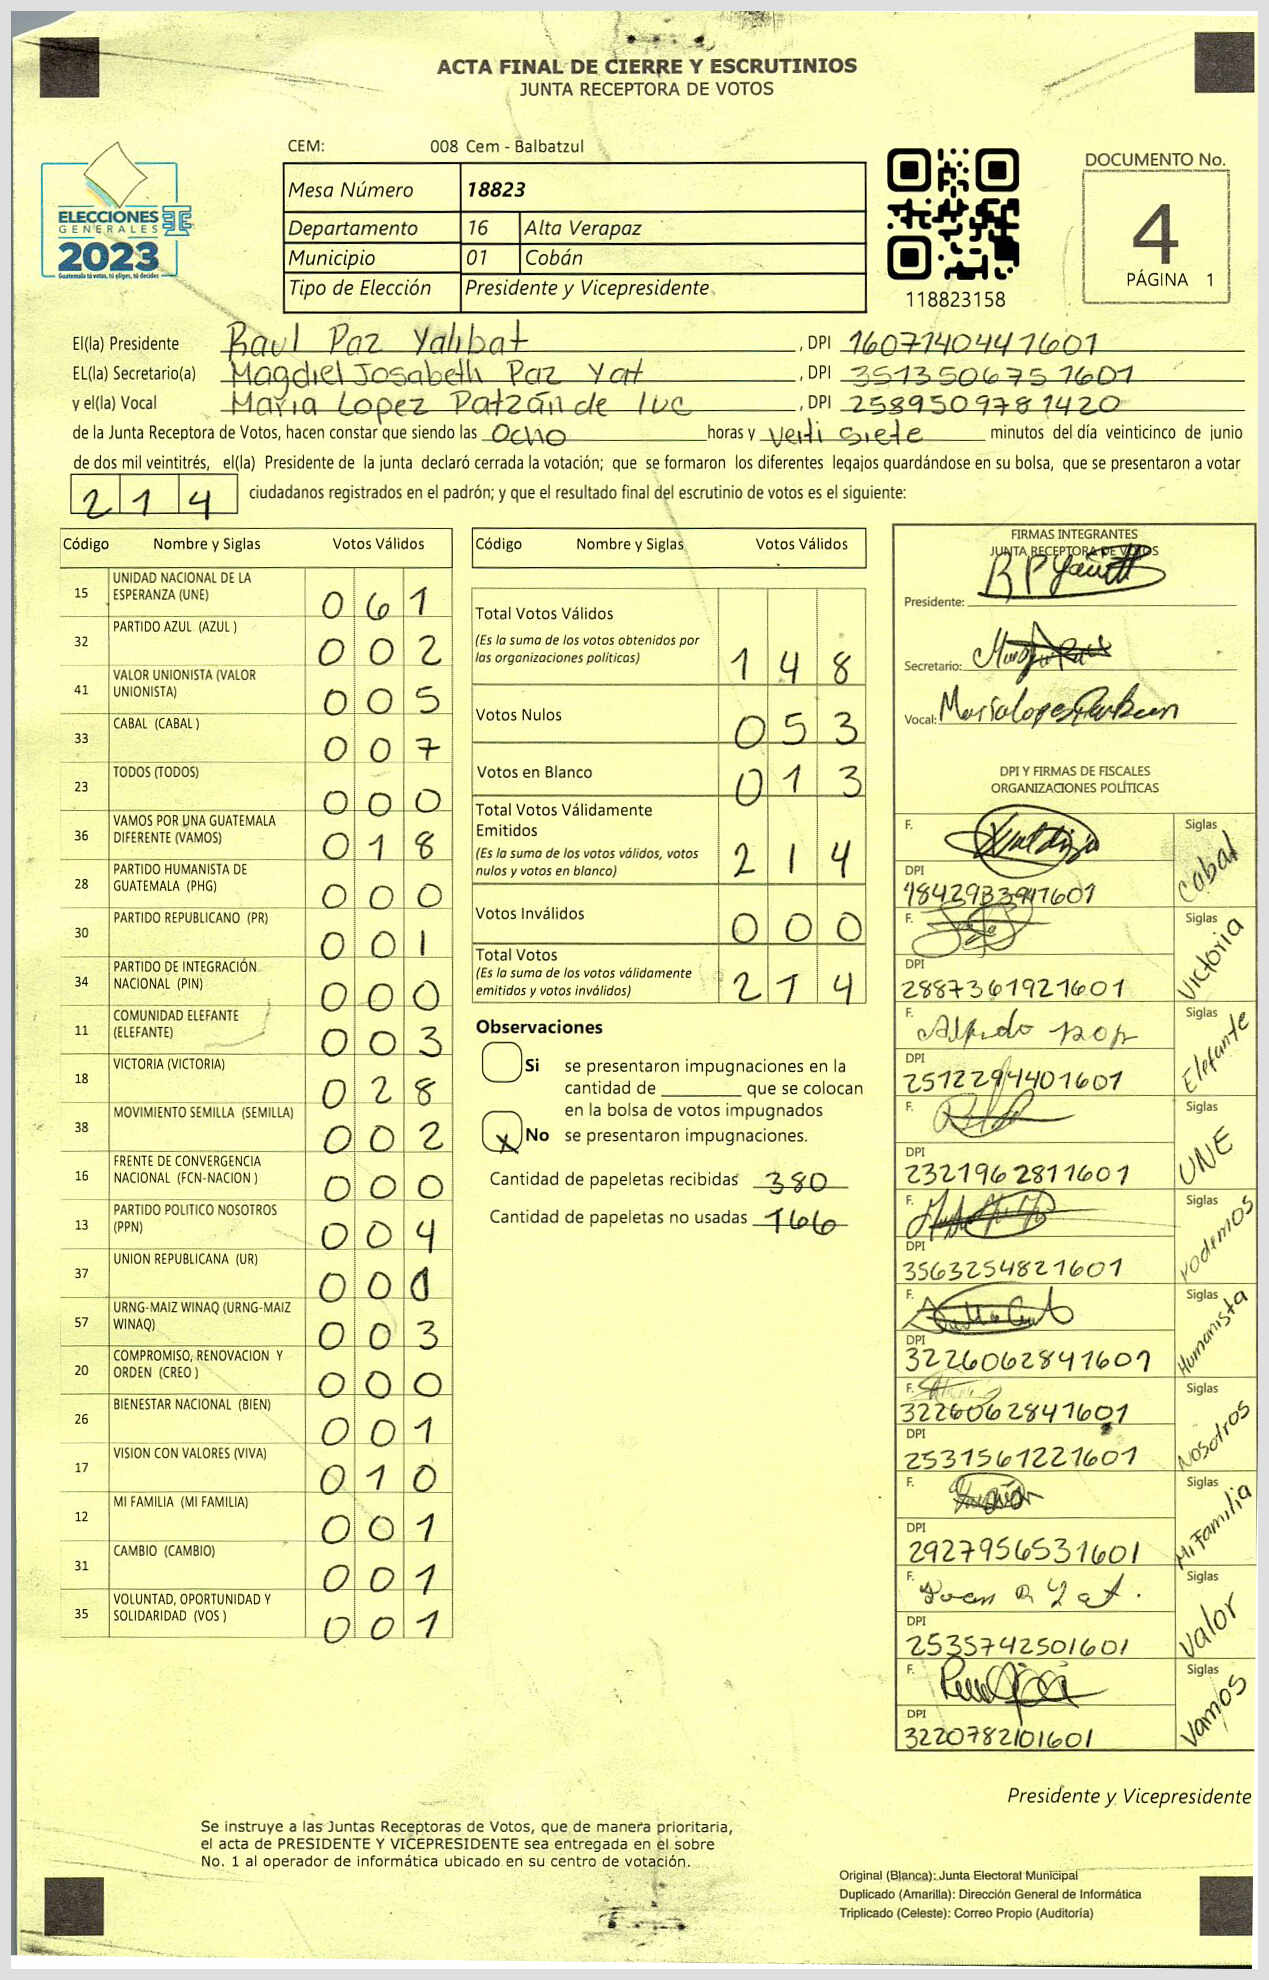 ACTA FINAL DE CIERRE Y ESCRUTINIOS
JUNTA RECEPTORA DE VOTOS
CEM: 008 Cem - Balbatzul
ELECCIONES
GENERALES
2023
Guatemala tú votas, tú eliges, tú decides
Mesa Número 18823
Departamento 16 Alta Verapaz
Municipio 01 Cobán
Tipo de Elección Presidente y Vicepresidente
118823158
DOCUMENTO No.
4
PÁGINA 1
El(la) Presidente Raul Paz Yalibat, DPI 1607140441601
EL(la) Secretario(a) Magdiel Josabeth Paz Yat, DPI 3513506751601
y el(la) Vocal Maria Lopez Patzán de Tuc, DPI 2589509781420
de la Junta Receptora de Votos, hacen constar que siendo las Ocho horas y Veiti Siete minutos del día veinticinco de junio
de dos mil veintitrés, el(la) Presidente de la junta declaró cerrada la votación; que se formaron los diferentes legajos guardándose en su bolsa, que se presentaron a votar
214 ciudadanos registrados en el padrón; y que el resultado final del escrutinio de votos es el siguiente:
Código Nombre y Siglas Votos Válidos
15 UNIDAD NACIONAL DE LA ESPERANZA (UNE) 061
32 PARTIDO AZUL (AZUL ) 002
41 VALOR UNIONISTA (VALOR UNIONISTA) 005
33 CABAL (CABAL ) 007
23 TODOS (TODOS) 000
36 VAMOS POR UNA GUATEMALA DIFERENTE (VAMOS) 018
28 PARTIDO HUMANISTA DE GUATEMALA (PHG) 000
30 PARTIDO REPUBLICANO (PR) 001
34 PARTIDO DE INTEGRACIÓN NACIONAL (PIN) 000
11 COMUNIDAD ELEFANTE (ELEFANTE) 003
18 VICTORIA (VICTORIA) 028
38 MOVIMIENTO SEMILLA (SEMILLA) 002
16 FRENTE DE CONVERGENCIA NACIONAL (FCN-NACION ) 000
13 PARTIDO POLITICO NOSOTROS (PPN) 004
37 UNION REPUBLICANA (UR) 00
57 URNG-MAIZ WINAQ (URNG-MAIZ WINAQ) 003
20 COMPROMISO, RENOVACION Y ORDEN (CREO ) 000
26 BIENESTAR NACIONAL (BIEN) 001
17 VISION CON VALORES (VIVA) 010
12 MI FAMILIA (MI FAMILIA) 001
31 CAMBIO (CAMBIO) 001
35 VOLUNTAD, OPORTUNIDAD Y SOLIDARIDAD (VOS ) 001
Código Nombre y Siglas Votos Válidos
Total Votos Válidos 148
(Es la suma de los votos obtenidos por
las organizaciones políticas)
Votos Nulos 053
Votos en Blanco 013
Total Votos Válidamente
Emitidos 214
(Es la suma de los votos válidos, votos
nulos y votos en blanco)
Votos Inválidos 000
Total Votos 214
(Es la suma de los votos válidamente
emitidos y votos inválidos)
Observaciones
Si se presentaron impugnaciones en la
cantidad de ________ que se colocan
en la bolsa de votos impugnados
X No se presentaron impugnaciones.
Cantidad de papeletas recibidas 380
Cantidad de papeletas no usadas 166
FIRMAS INTEGRANTES
JUNTA RECEPTORA DE VOTOS
Presidente:
Secretario:
Vocal:
DPI Y FIRMAS DE FISCALES
ORGANIZACIONES POLÍTICAS
F. Siglas Cabal
DPI 1842933941601
F. Siglas Victoria
DPI 2887361921601
F. Alfredo Pop Siglas Elefante
DPI 2512294401601
F. Siglas UNE
DPI 2321962811601
F. Siglas Podemos
DPI 3563254821601
F. Siglas Humanista
DPI 3226062841601
F. Siglas Nosotros
3226062841601
DPI 2531561221601
F. Siglas Mi Familia
DPI 2927956531601
F. Siglas Valor
DPI 2535742501601
F. Siglas Vamos
DPI 3220782101601
Presidente y Vicepresidente
Se instruye a las Juntas Receptoras de Votos, que de manera prioritaria,
el acta de PRESIDENTE Y VICEPRESIDENTE sea entregada en el sobre
No. 1 al operador de informática ubicado en su centro de votación.
Original (Blanca): Junta Electoral Municipal
Duplicado (Amarilla): Dirección General de Informática
Triplicado (Celeste): Correo Propio (Auditoría)